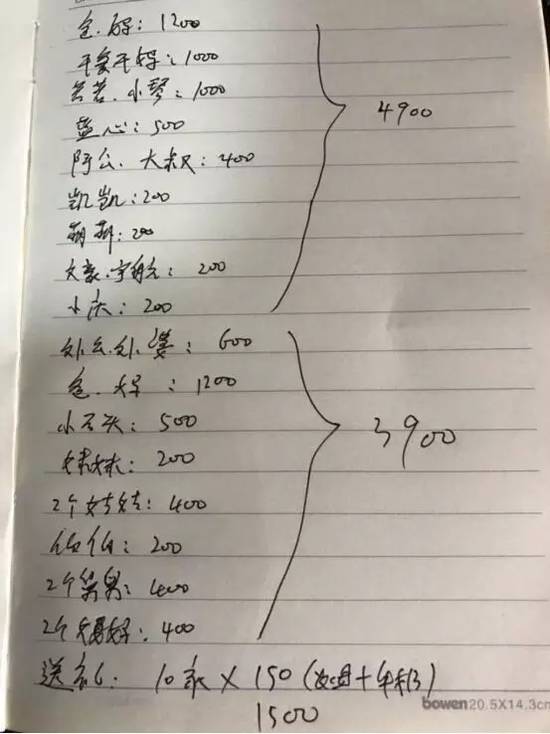 爸.妈：1200
干爹干妈：1000
芸芸.小琴：1000
蓝心：500
阿公.大叔：400
凯凯：200
萌萌：200
文豪.宇航：200
小庆：200
4900
外公.外婆：600
爸.妈：1200
小石头：500
妹妹：200
2个姑姑：400
伯伯：200
2个舅舅：400
2个舅妈：400
3900
送礼：10家×150（+年糕）
1500
bowen 20.5X14.3cm